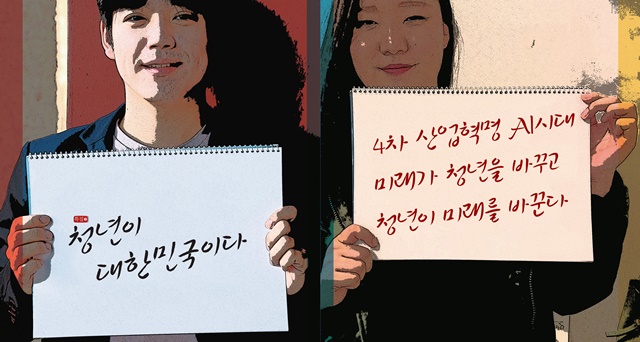 청년이
대한민국이다
4차 산업혁명 AI시대
미래가 청년을 바꾸고
청년이 미래를 바꾼다